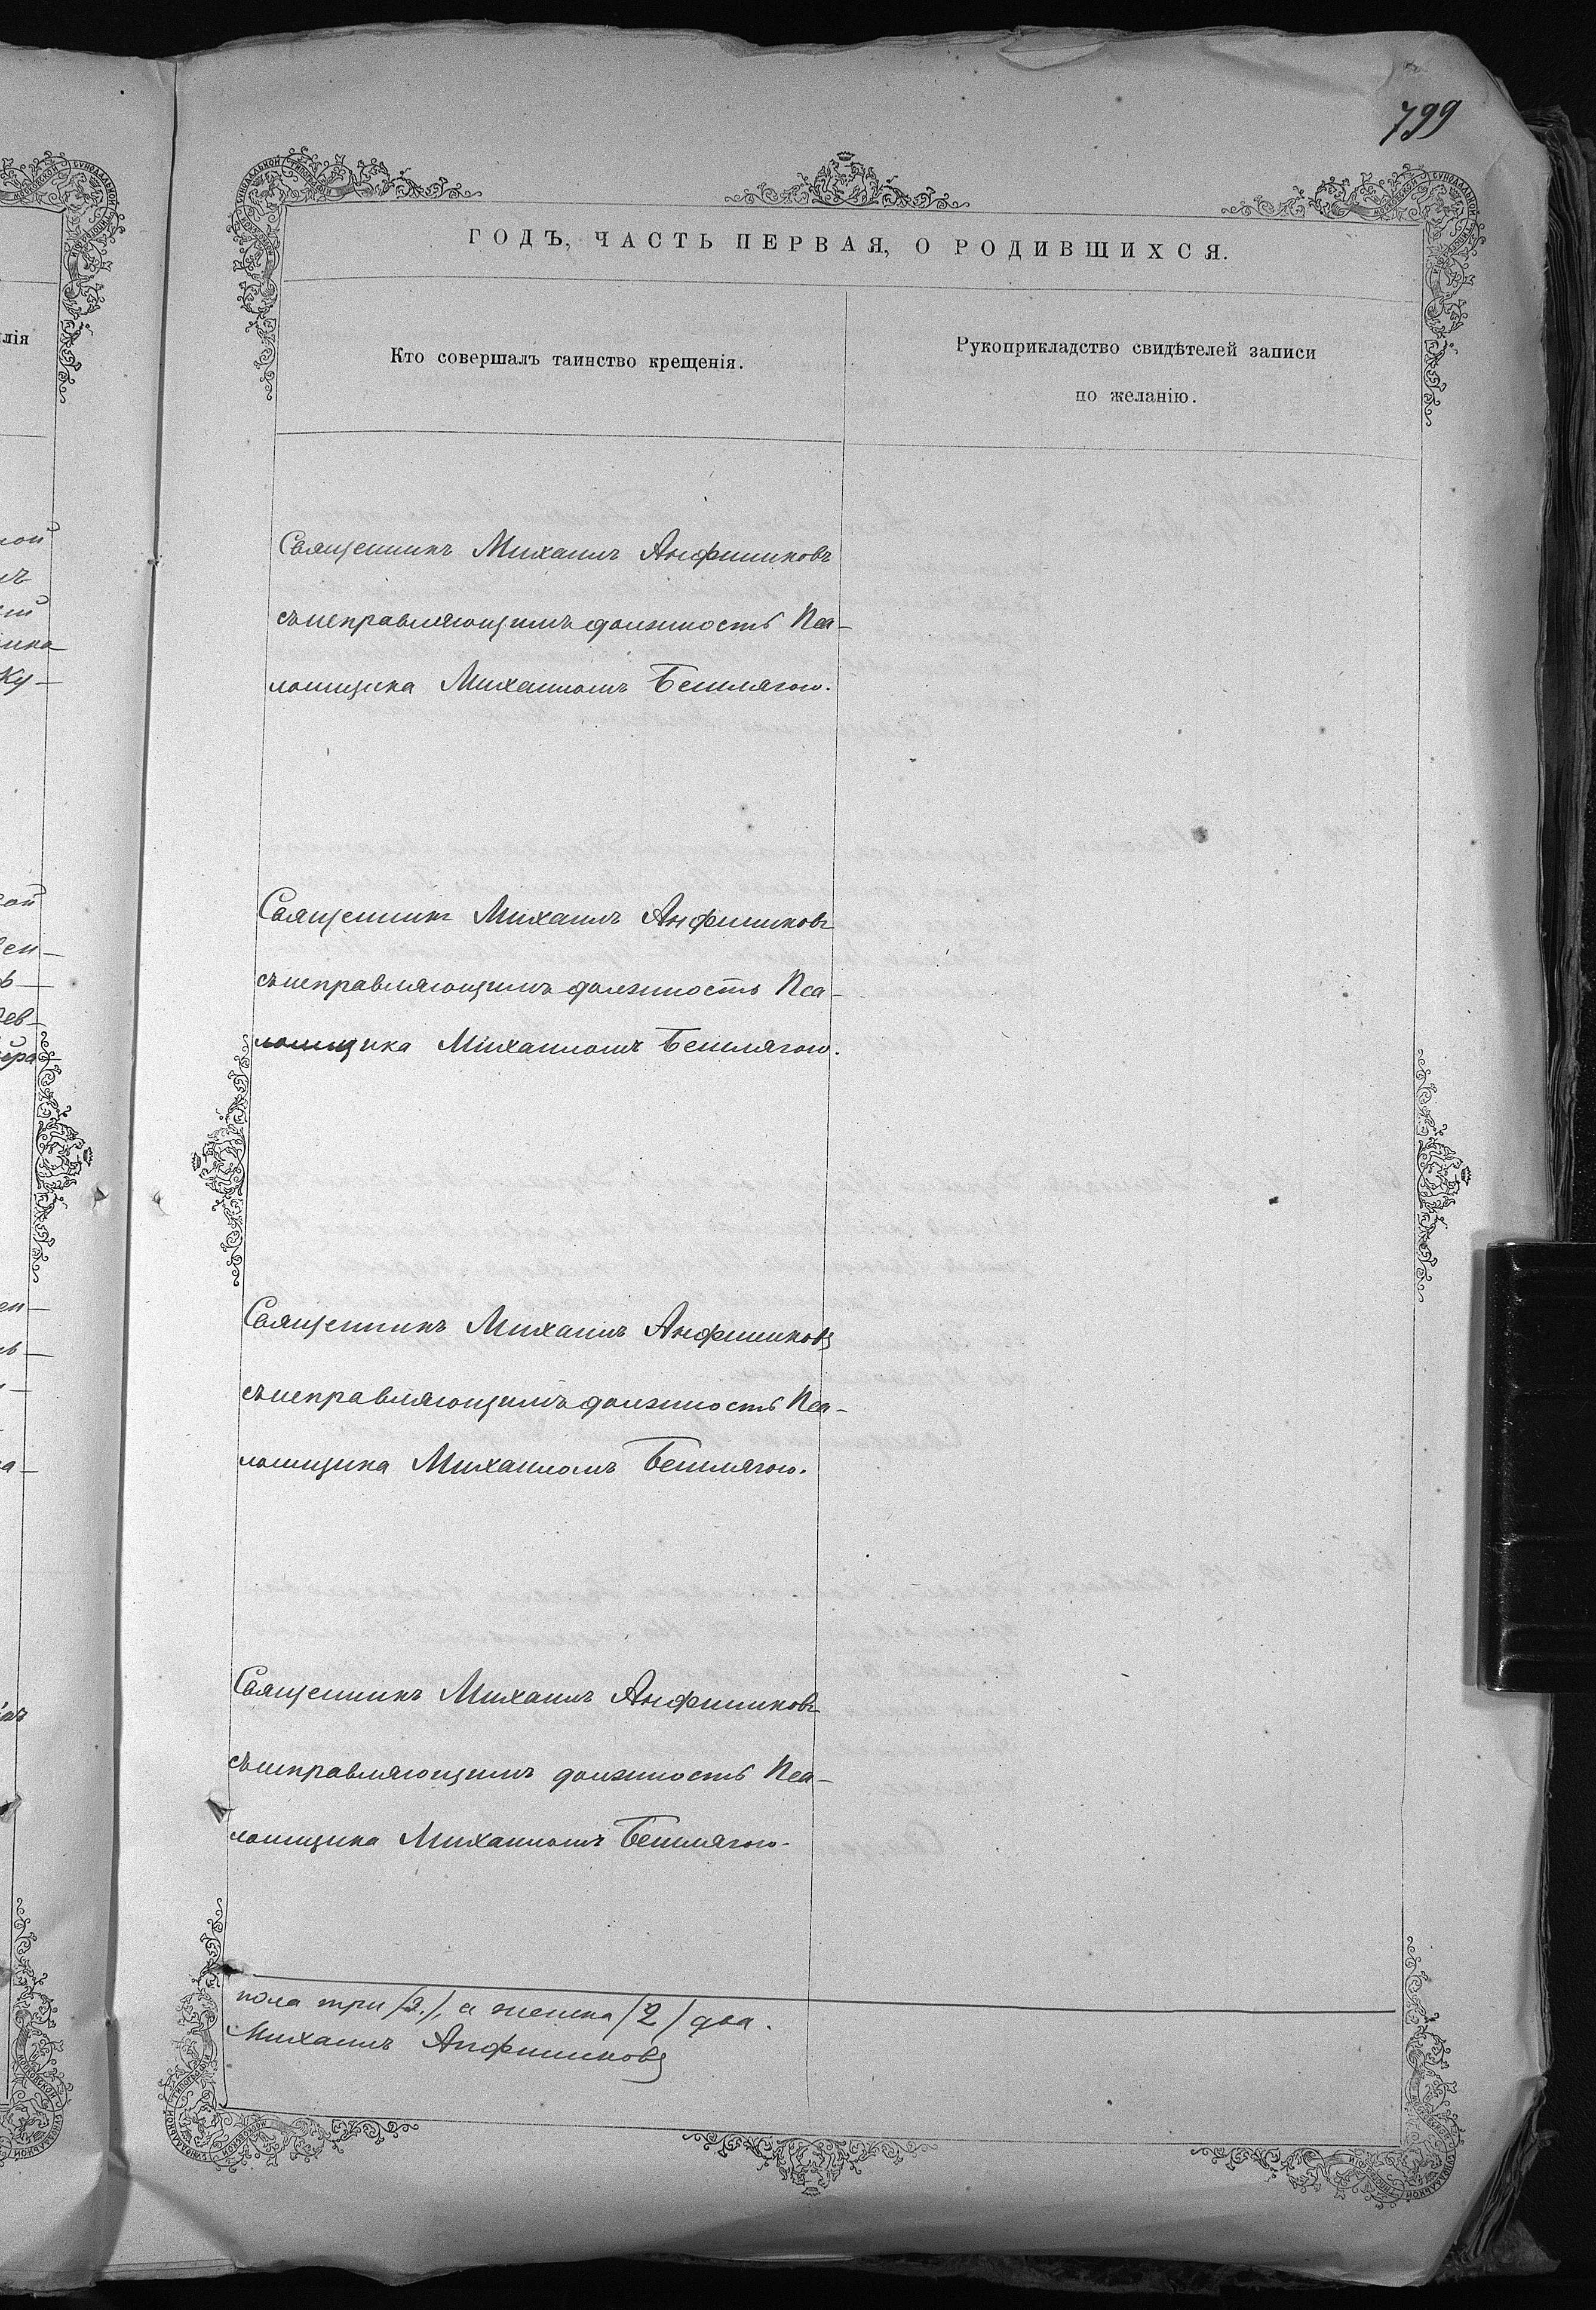 799
ГОДЪ, ЧАСТЬ ПЕРВАЯ, О РОДИВШИХСЯ.
Кто совершалъ таинство крещенія.
Рукоприкладство свидѣтелей записи
по желанію.
Священникъ Михаилъ Анфиниковъ
съ исправляющимъ должность Пса-
ломщика Михаиломъ Бешлягою.
Священникъ Михаилъ Анфиниковъ
съ исправляющимъ должность Пса-
ломщика Михаиломъ Бешлягою.
Священникъ Михаилъ Анфиниковъ
съ исправляющимъ должность Пса-
ломщика Михаиломъ Бешлягою.
Священникъ Михаилъ Анфиниковъ
съ исправляющимъ должность Пса-
ломщика Михаиломъ Бешлягою.
пола три /3./, а женска /2/ два.
Михаилъ Анфиниковъ